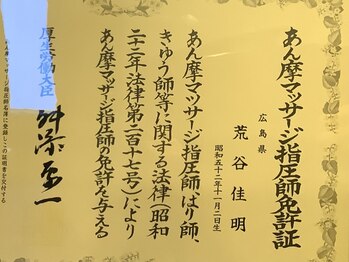 あん摩マツサージ指圧師免許証
広島県
荒谷佳明
昭和五十二年十一月二日生
あん摩マツサージ指圧師、はり師、
きゆう師等に関する法律(昭和
二十二年法律第二百十七号)により
あん摩マツサージ指圧師の免許を与える
厚生労働大臣
舛添要一
あん摩マツサージ指圧師名簿に登録しこの証明書を交付する